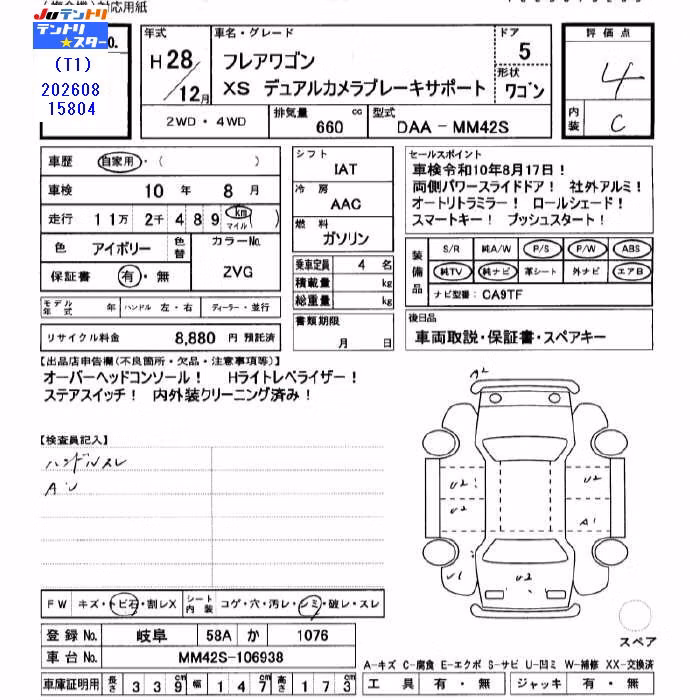 対応用紙
Juテントリ
テントリ★スター
No.
(T1)
202608
15804
年式
H28/12月
車名・グレード
フレアワゴン
XS デュアルカメラブレーキサポート
ドア
5
形状
ワゴン
評価点
4
内装
C
2WD・4WD
排気量
660 cc
型式
DAA-MM42S
車歴 自家用・( )
車検 10年 8月
走行 11万 2千 489 km マイル ( )
色 アイボリー 色替
カラーNo.
ZVG
保証書 有・無
モデル年式 年 ハンドル 左・右 ディーラー・並行
リサイクル料金 8,880 円 預託済
シフト
IAT
冷房
AAC
燃料
ガソリン
乗車定員 4 名
積載量 kg
総重量 kg
書類期限
月 日
セールスポイント
車検令和10年8月17日!
両側パワースライドドア! 社外アルミ!
オートリトラミラー! ロールシェード!
スマートキー! プッシュスタート!
装備品
S/R 純A/W P/S P/W ABS
純TV 純ナビ 革シート 外ナビ エアB
ナビ型番: CA9TF
後日品
車両取説・保証書・スペアキー
【出品店申告欄(不良箇所・欠品・注意事項等)】
オーバーヘッドコンソール! Hライトレベライザー!
ステアスイッチ! 内外装クリーニング済み!
【検査員記入】
ハンドルスレ
AU
A2
U2
U2
U2
A1
U1
U2
FW キズ・トビ石・割レX
シート内装 コゲ・穴・汚レ・シミ・破レ・スレ
登録No. 岐阜 58A か 1076
車台No. MM42S-106938
車庫証明用 長さ 339 幅 147 高さ 173
スペア
A-キズ C-腐食 E-エクボ S-サビ U-凹ミ W-補修 XX-交換済
工具 有・無 ジャッキ 有・無